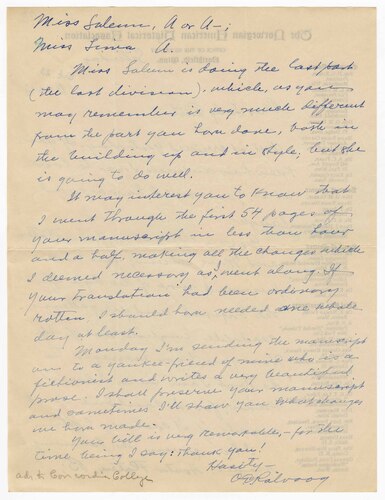 Miss Salem, A or A-;
Miss Siwa A.
Miss Salem is doing the last part
(the last division), which, as you
may remember is very much different
from the part you have done, both in
the building up and in style, but she
is going to do well.
It may interest you to know that
I went through the first 54 pages of
your manuscript in less than hour
and a half, making all the changes which
I deemed necessary as I went along. If
your translation had been ordinary
rotten I should have needed one whole
day at least.
Monday I'm sending the manuscript
on to a yankee-friend of mine who is a
fictionist and writes a very beautiful
prose. I shall preserve your manuscript
and sometimes I'll show you what changes
we have made.
Your bill is very reasonable, – for the
time being I say: thank you!
Hastily –
OE Rølvaag
ad. to Concordia College